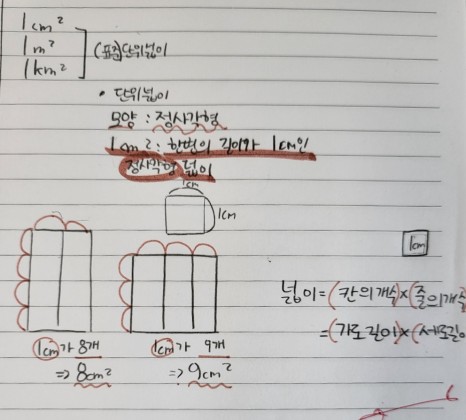 1cm²
1m²
1km²
(표준)단위넓이
• 단위넓이
모양 : 정사각형
1cm² : 한변의 길이가 1cm인
정사각형 넓이
1cm
1cm
1cm
넓이=(칸의개수)×(줄의개수
=(가로길이)×(세로길이
1cm가 8개
⇒ 8cm²
1cm가 9개
⇒ 9cm²